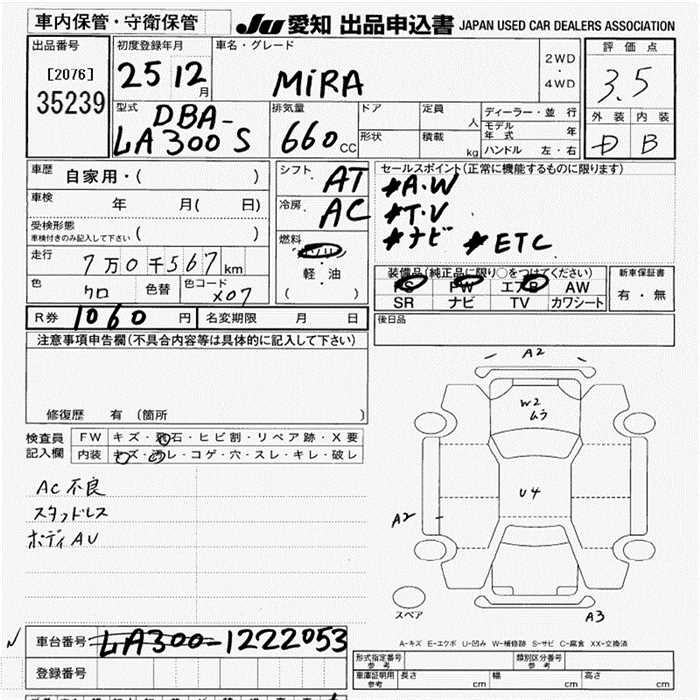 車内保管・守衛保管
JU 愛知 出品申込書 JAPAN USED CAR DEALERS ASSOCIATION
出品番号
[2076]
35239
初度登録年月
25 12月
車名・グレード
MiRA
2WD
・
4WD
評価点
3.5
外装 内装
D B
型式
DBA-
LA300S
排気量
660cc
ドア
定員
人
形状
積載
kg
ディーラー・並行
モデル年式 年
ハンドル 左・右
車歴 自家用・( )
車検 年 月( 日)
受検形態
車検付きのみ記入して下さい ( )
走行 7万0千567km
色 クロ 色替 色コード X07
シフト AT
冷房 AC
燃料
ガソリン
軽・油
( )
セールスポイント(正常に機能するものに限ります)
#A・W
#T・V
#ナビ #ETC
装備品(純正品に限り○をつけてください)
PS PW エアB AW
SR ナビ TV カワシート
新車保証書
有・無
R券 1060円 名変期限 月 日
後日品
注意事項申告欄(不具合内容等は具体的に記入して下さい)
修復歴 有(箇所 )
検査員
記入欄
FW キズ・飛石・ヒビ割・リペア跡・X要
内装 キズ・汚レ・コゲ・穴・スレ・キレ・破レ
AC不良
スタッドレス
ボディAU
A2
W2
ムラ
U4
A2
スペア
A3
A-キズ E-エクボ U-凹み W-補修跡 S-サビ C-腐食 XX-交換済
車台番号 LA300-1222053
登録番号
形式指定番号
参考
類別区分番号
参考
車庫証明用
参考
長さ cm 幅 cm 高さ cm